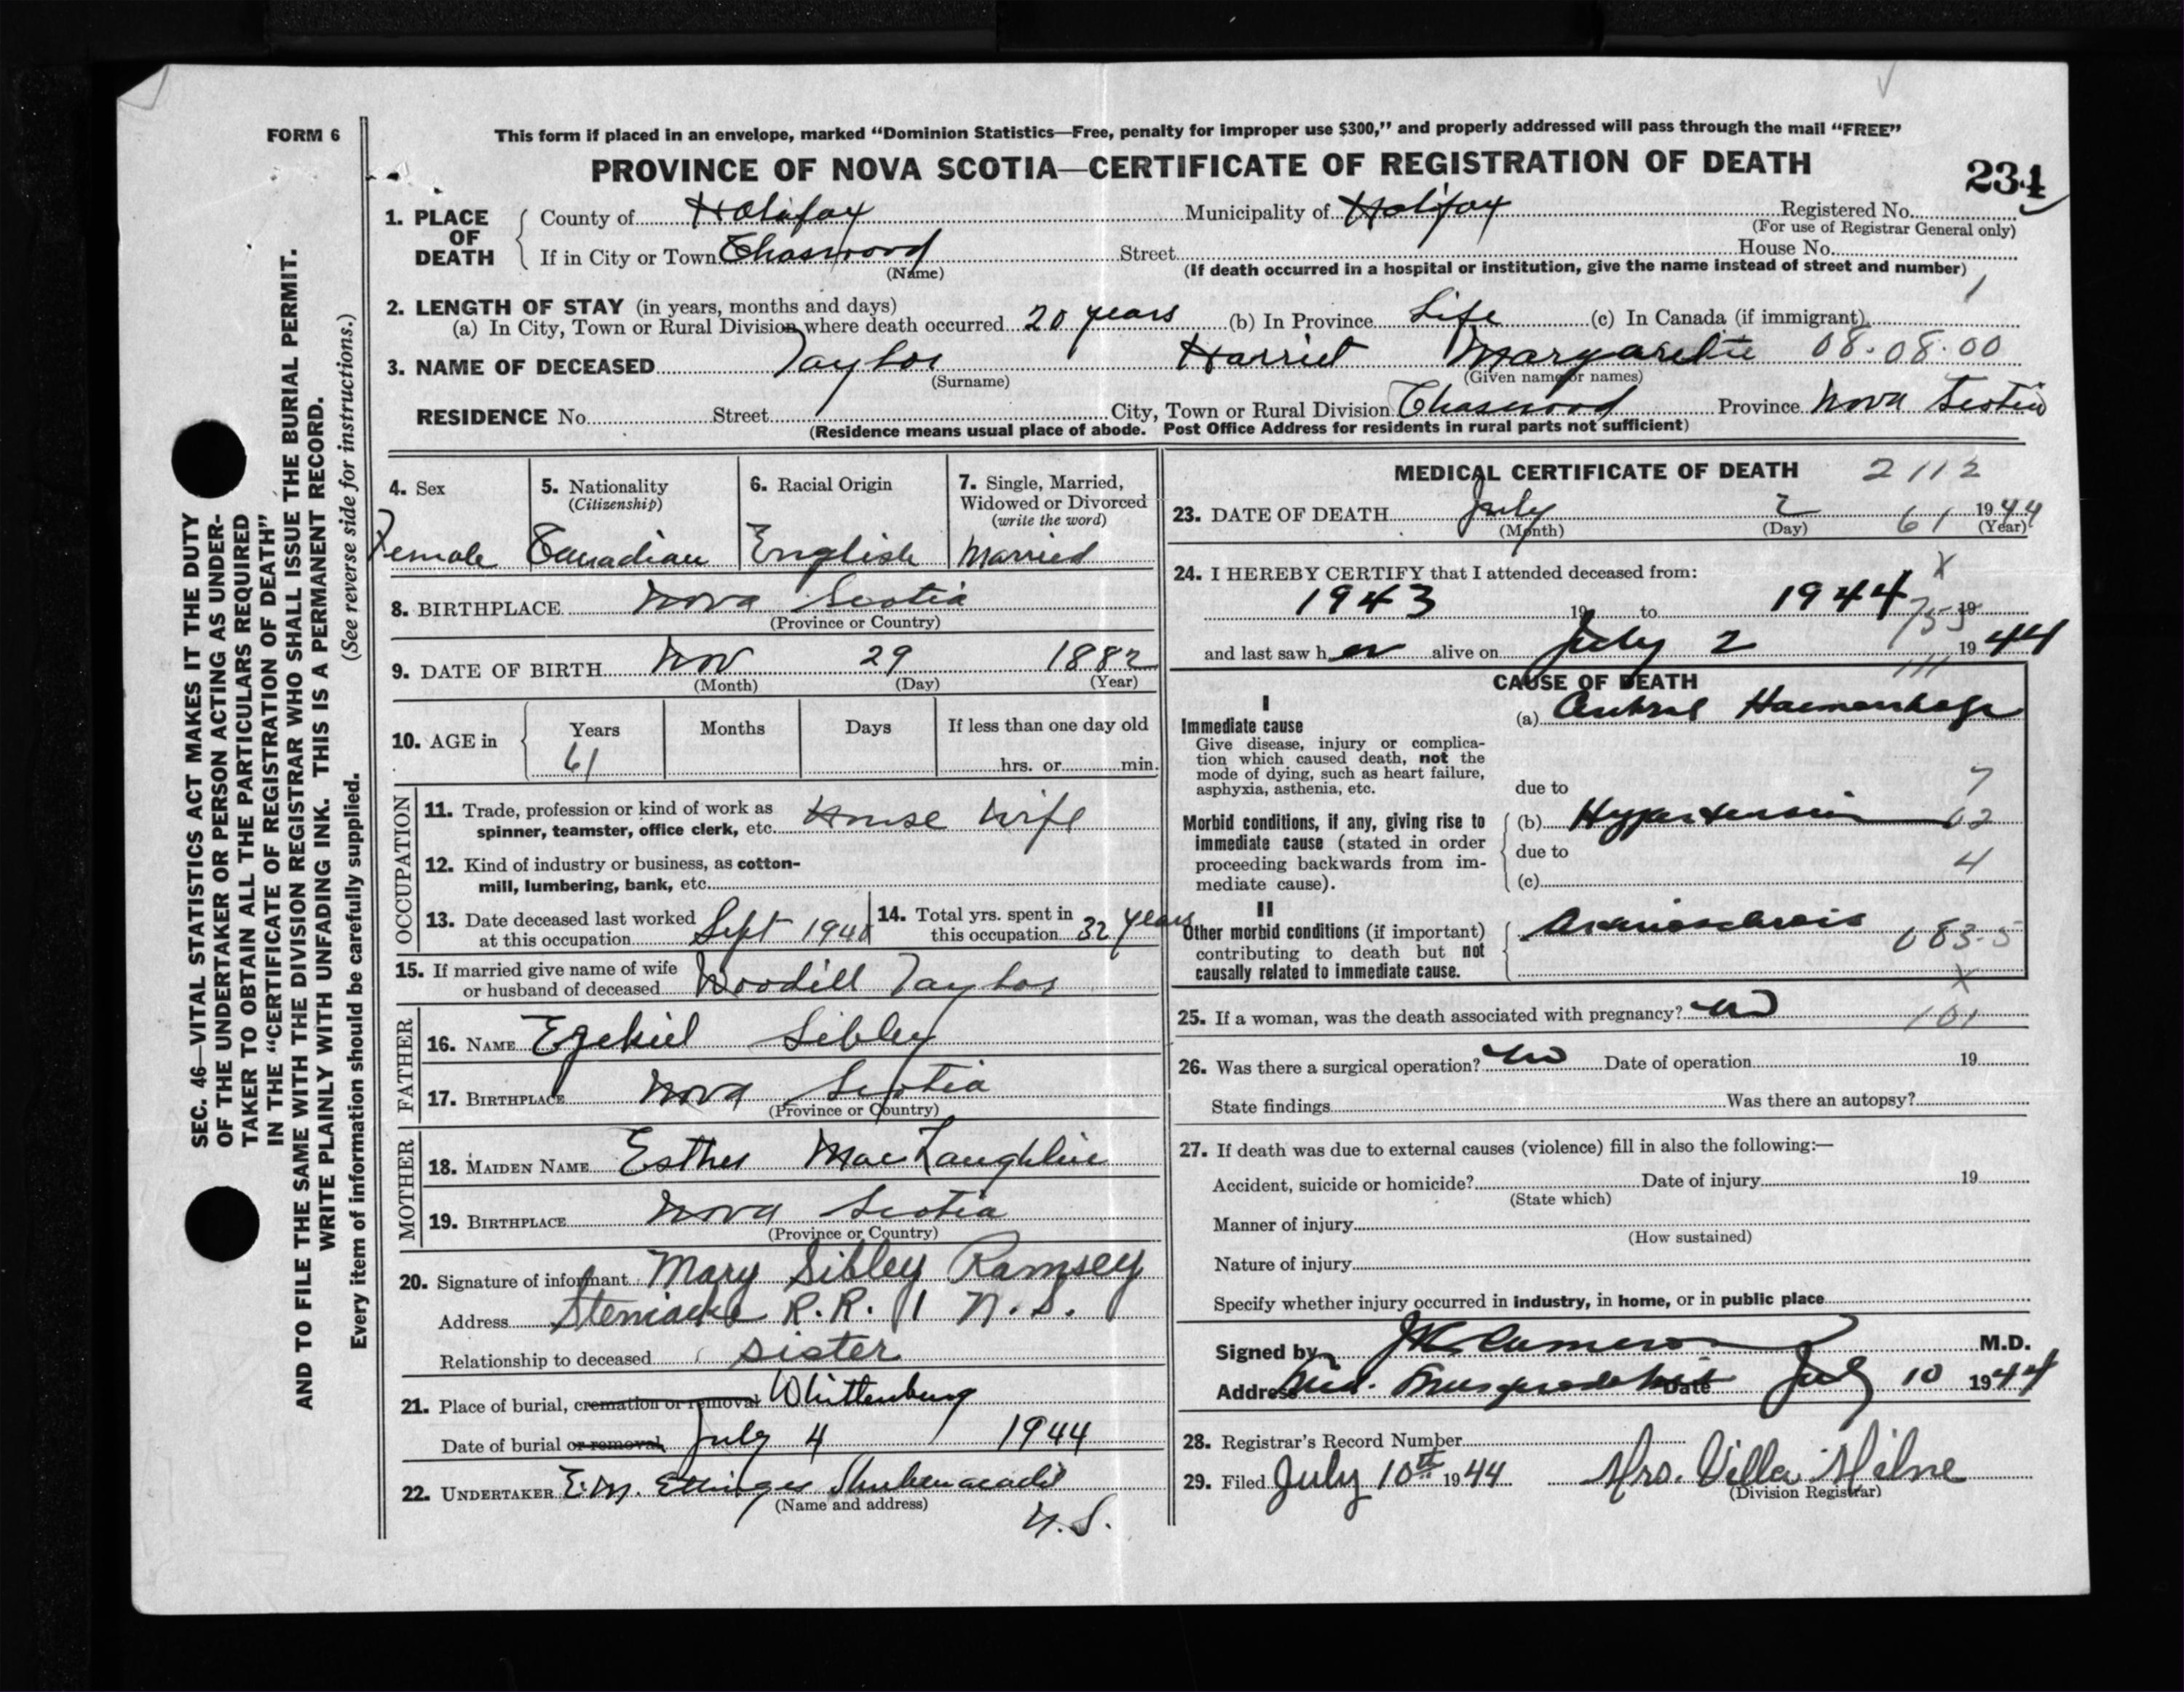 FORM 6
This form if placed in an envelope, marked “Dominion Statistics—Free, penalty for improper use $300,” and properly addressed will pass through the mail “FREE”
PROVINCE OF NOVA SCOTIA—CERTIFICATE OF REGISTRATION OF DEATH
234
1. PLACE OF DEATH
County of Halifax Municipality of Halifax Registered No.
(For use of Registrar General only)
If in City or Town Chaswood Street House No.
(Name) (If death occurred in a hospital or institution, give the name instead of street and number)
1
2. LENGTH OF STAY (in years, months and days)
(a) In City, Town or Rural Division where death occurred 20 years (b) In Province Life (c) In Canada (if immigrant)
3. NAME OF DECEASED Taylor Harriet 08.08.00
(Surname) (Given name or names)
RESIDENCE No. Street City, Town or Rural Division Chaswood Province Nova Scotia
(Residence means usual place of abode. Post Office Address for residents in rural parts not sufficient)
4. Sex
Female
5. Nationality
(Citizenship)
Canadian
6. Racial Origin
English
7. Single, Married,
Widowed or Divorced
(write the word)
Married
8. BIRTHPLACE Nova Scotia
(Province or Country)
9. DATE OF BIRTH Nov 29 1882
(Month) (Day) (Year)
10. AGE in Years Months Days If less than one day old
61 hrs. or min.
OCCUPATION
11. Trade, profession or kind of work as
spinner, teamster, office clerk, etc. House Wife
12. Kind of industry or business, as cotton-
mill, lumbering, bank, etc.
13. Date deceased last worked
at this occupation Sept
14. Total yrs. spent in
this occupation 32 years
15. If married give name of wife
or husband of deceased Woodill Taylor
FATHER
16. NAME Ezekiel Sibley
17. BIRTHPLACE Nova Scotia
(Province or Country)
MOTHER
18. MAIDEN NAME Esther MacLaughlin
19. BIRTHPLACE Nova Scotia
(Province or Country)
20. Signature of informant Mary Sibley Ramsey
Address R.R. 1 N.S.
Relationship to deceased sister
21. Place of burial, cremation or removal Whittenburg
Date of burial or removal July 4 1944
22. UNDERTAKER E.M. Ettinger Shubenacadie
(Name and address)
N.S.
MEDICAL CERTIFICATE OF DEATH 2112
23. DATE OF DEATH July 2 61 1944
(Month) (Day) (Year)
24. I HEREBY CERTIFY that I attended deceased from: X
1943 19 to 1944 19
and last saw her alive on July 2 1944
111
CAUSE OF DEATH
I
Immediate cause
Give disease, injury or complica-
tion which caused death, not the
mode of dying, such as heart failure,
asphyxia, asthenia, etc.
(a) Haemorrhage
7
due to
Morbid conditions, if any, giving rise to
immediate cause (stated in order
proceeding backwards from im-
mediate cause).
(b) Hypertension
due to
4
(c)
II
Other morbid conditions (if important)
contributing to death but not
causally related to immediate cause.
083-5
X
25. If a woman, was the death associated with pregnancy? no
101
26. Was there a surgical operation? no Date of operation 19
State findings Was there an autopsy?
27. If death was due to external causes (violence) fill in also the following:—
Accident, suicide or homicide? Date of injury 19
(State which)
Manner of injury
(How sustained)
Nature of injury
Specify whether injury occurred in industry, in home, or in public place
Signed by Cameron M.D.
Address Mid. Musquodoboit Date July 10 1944
28. Registrar's Record Number
29. Filed July 10th 1944 Mrs. Villa Milne
(Division Registrar)
SEC. 46—VITAL STATISTICS ACT MAKES IT THE DUTY
OF THE UNDERTAKER OR PERSON ACTING AS UNDER-
TAKER TO OBTAIN ALL THE PARTICULARS REQUIRED
IN THE “CERTIFICATE OF REGISTRATION OF DEATH”
AND TO FILE THE SAME WITH THE DIVISION REGISTRAR WHO SHALL ISSUE THE BURIAL PERMIT.
WRITE PLAINLY WITH UNFADING INK. THIS IS A PERMANENT RECORD.
Every item of information should be carefully supplied. (See reverse side for instructions.)